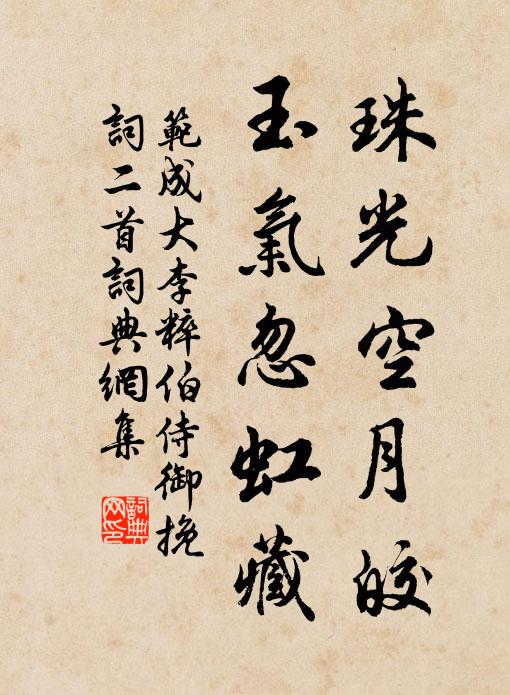 珠光空月皎
玉氣忽虹藏
範成大李粹伯侍御挽
詞二首詞典網集
詞典
网印